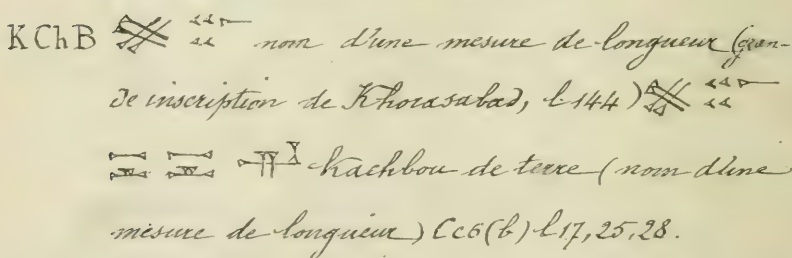 KChB nom d'une mesure de longueur (gran-
de inscription de Khorasabad, l 144)
Kachbou de terre (nom d'une
mesure de longueur) Cc6(b) l 17, 25, 28.